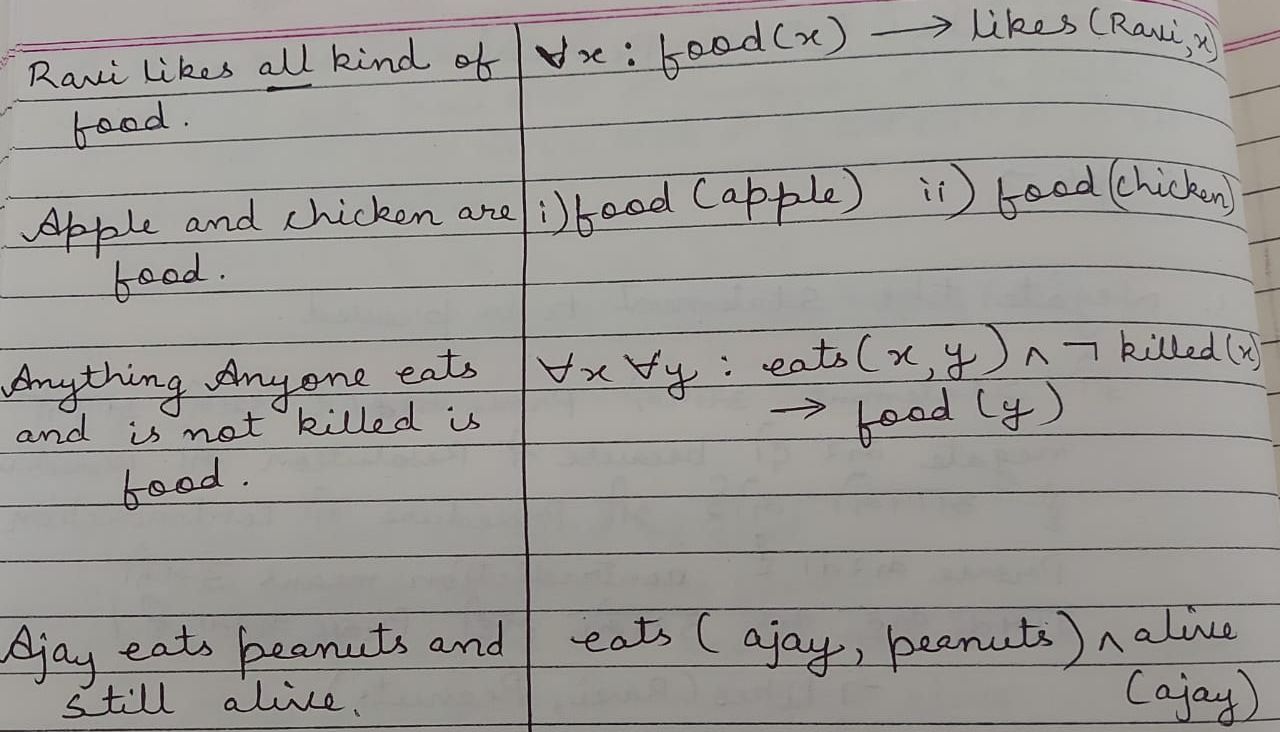 Ravi likes all kind of food.
∀x : food(x) → likes (Ravi, x)
Apple and chicken are food.
i) food (apple) ii) food (chicken)
Anything Anyone eats and is not killed is food.
∀x ∀y : eats (x, y) ∧ ¬ killed (x) → food (y)
Ajay eats peanuts and still alive.
eats ( ajay, peanuts) ∧ alive (ajay)